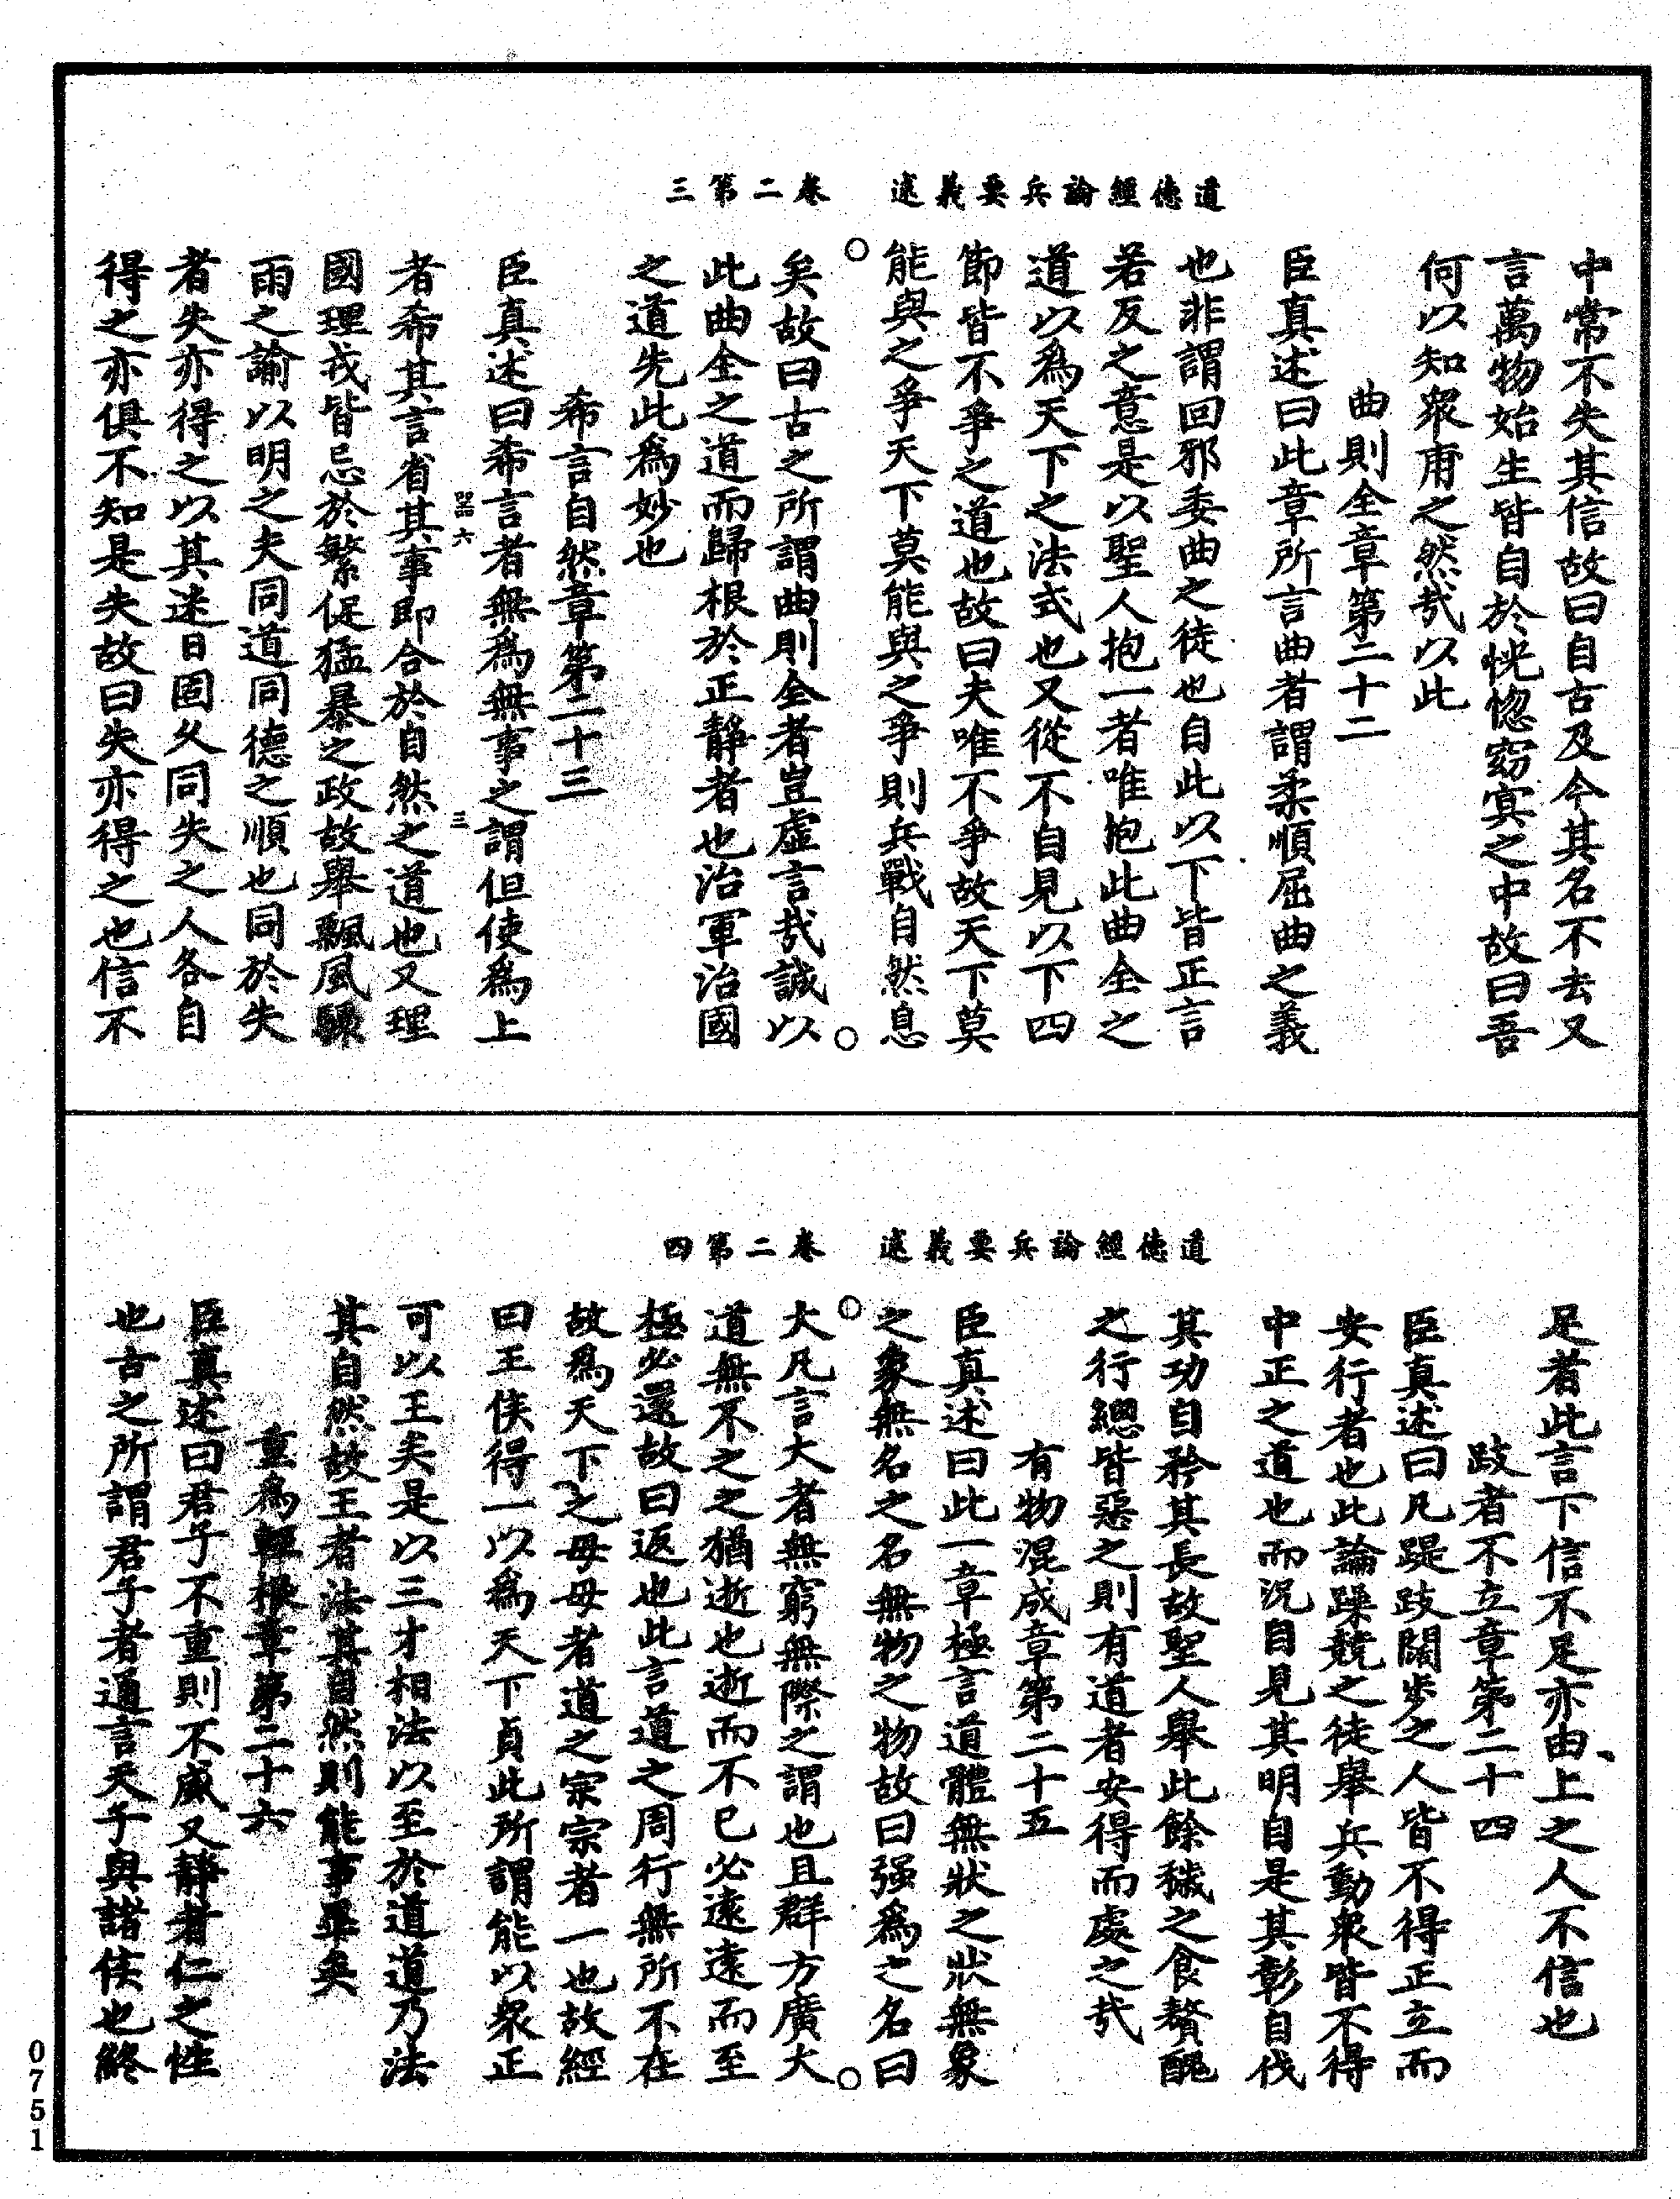 道德經論兵要義述　卷二第三
中常不失其信故曰自古及今其名不去又
言萬物始生皆自於恍惚窈冥之中故曰吾
何以知衆甫之然哉以此
曲則全章第二十二
臣真述曰此章所言曲者謂柔順屈曲之義
也非謂回邪委曲之徒也自此以下皆正言
若反之意是以聖人抱一者唯抱此曲全之
道以爲天下之法式也又從不自見以下四
節皆不爭之道也故曰夫唯不爭故天下莫
能與之爭天下莫能與之爭則兵戰自然息
矣故曰古之所謂曲則全者豈虛言哉誠以
此曲全之道而歸根於正靜者也治軍治國
之道先此爲妙也
希言自然章第二十三
臣真述曰希言者無爲無事之謂但使爲上
六　三
者希其言省其事即合於自然之道也又理
國理戎皆忌於繁促猛暴之政故舉飄風驟
雨之諭以明之夫同道同德之順也同於失
者失亦得之以其迷日固久同失之人各自
得之亦俱不知是失故曰失亦得之也信不
道德經論兵要義述　卷二第四
足者此言下信不足亦由上之人不信也
跂者不立章第二十四
臣真述曰凡踶跂闊步之人皆不得正立而
安行者也此論躁競之徒舉兵動衆皆不得
中正之道也而況自見其明自是其彰自伐
其功自矜其長故聖人舉此餘穢之食贅醜
之行總皆惡之則有道者安得而處之哉
有物混成章第二十五
臣真述曰此一章極言道體無狀之狀無象
之象無名之名無物之物故曰强爲之名曰
大凡言大者無窮無際之謂也且群方廣大
道無不之之猶逝也逝而不已必遠遠而至
極必還故曰返也此言道之周行無所不在
故爲天下之母母者道之宗宗者一也故經
曰王侯得一以爲天下貞此所謂能以衆正
可以王矣是以三才相法以至於道道乃法
其自然故王者法其自然則能事畢矣
重爲輕根章第二十六
臣真述曰君子不重則不威又靜者仁之性
也古之所謂君子者通言天子與諸侯也終
0751